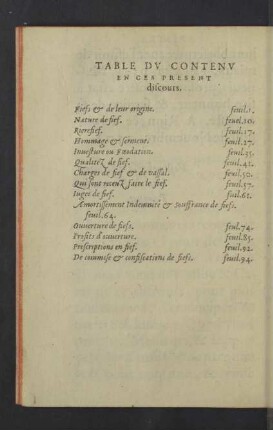 TABLE DV CONTENV
EN CES PRESENT
discours.
Fiefs & de leur origine. feuil.1.
Nature de fief. feuil.10.
Rierefief. feuil.17.
Hommage & serment. feuil.27.
Inuesture ou Fondation. feuil.35.
Qualitez de fief. feuil.42.
Charges de fief & de vassal. feuil.50.
Qui sont receuz faire le fief. feuil.57.
Iuges de fief. fuil.62.
Amortissement Indemnité & Souffrance de fiefs.
feuil.64.
Ouuerture de fiefs. feul.74.
Profits d'ouuerture. feuil.85.
Prescriptions en fief. feuil.92.
De commise & confiscations de fiefs. feuil.94.